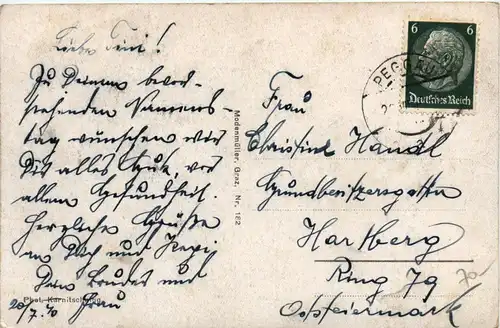 Liebe Tini!
Zu Deinem bevor-
stehenden Namens-
tag wünschen wir
Dir alles Gute, vor
allem Gesundheit.
Herzliche Grüße
an Dich und
Dein Bruder und
Frau
20/7.40
Phot. Karnitschnigg
Modenmüller, Graz, Nr. 182
6 6
Deutsches Reich
PEGGAU
Frau
Christine Handl
Grundbesitzersgattin
Hartberg
Ring 79
Oststeiermark